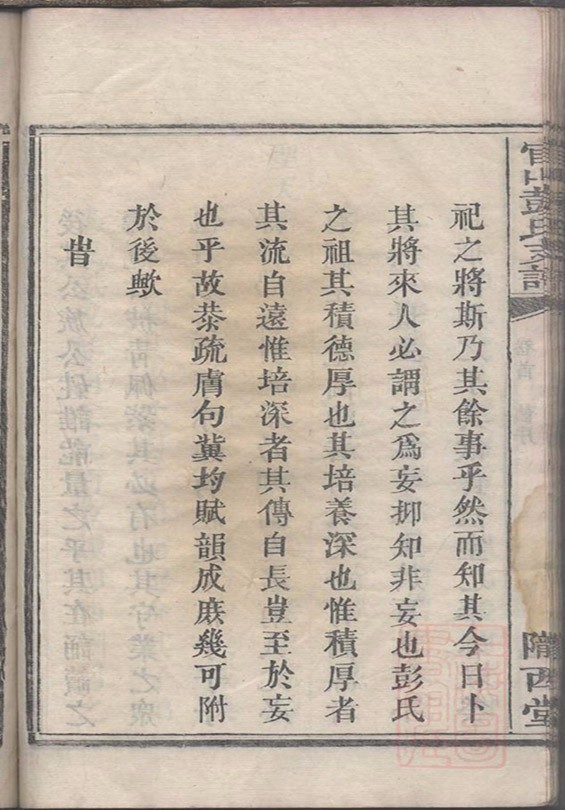 官山彭氏支譜
卷首
隴西堂
祀之將斯乃其餘事乎然而知其今日卜
其將來人必謂之為妄抑知非妄也彭氏
之祖其積德厚也其培養深也惟積厚者
其流自遠惟培深者其傳自長豈至於妄
也乎故恭疏膚句冀均賦韻成庶幾可附
於後歟
旹